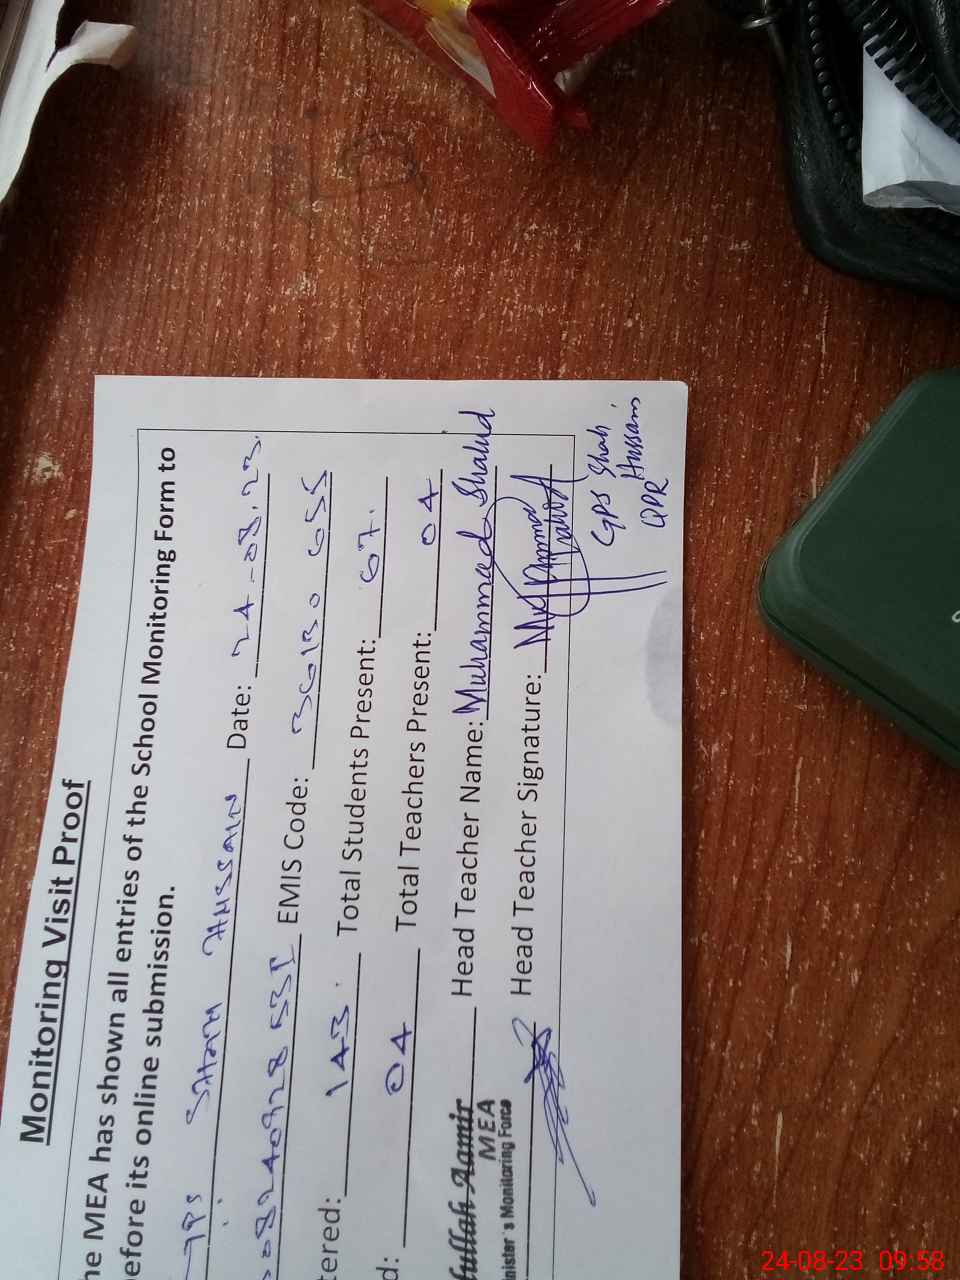 Monitoring Visit Proof
he MEA has shown all entries of the School Monitoring Form to
efore its online submission.
GPS SHAH HUSSAIN Date: 24-08.23.
EMIS Code: 36130 655
tered: 143. Total Students Present: 67.
d: 04 Total Teachers Present: 04
fullah Aamir Head Teacher Name: Muhammad Shahid
MEA
inister's Monitoring Force
Head Teacher Signature:
GPS Shah
Hussain
QPR
24-08-23 09:58